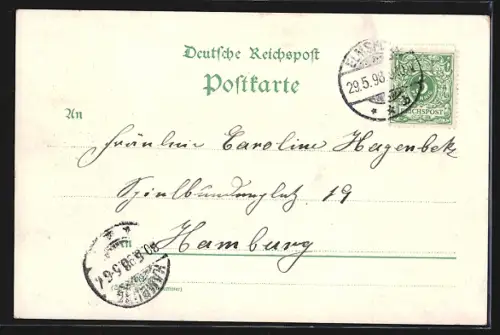 Deutsche Reichspost
Postkarte
29.5.98
REICHSPOST
An
Fräulein Caroline Hagenbek
Spielbudenplatz 19
in Hamburg